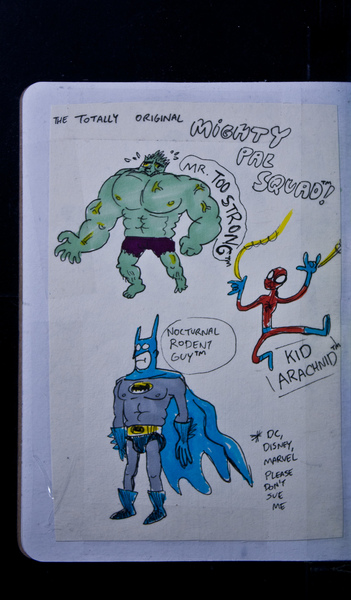 THE TOTALLY ORIGINAL
MIGHTY
PAL
SQUAD!™
MR. TOO STRONG™
NOCTURNAL
RODENT
GUY™
KID
ARACHNID™
* DC,
DISNEY,
MARVEL
PLEASE
DON'T
SUE
ME